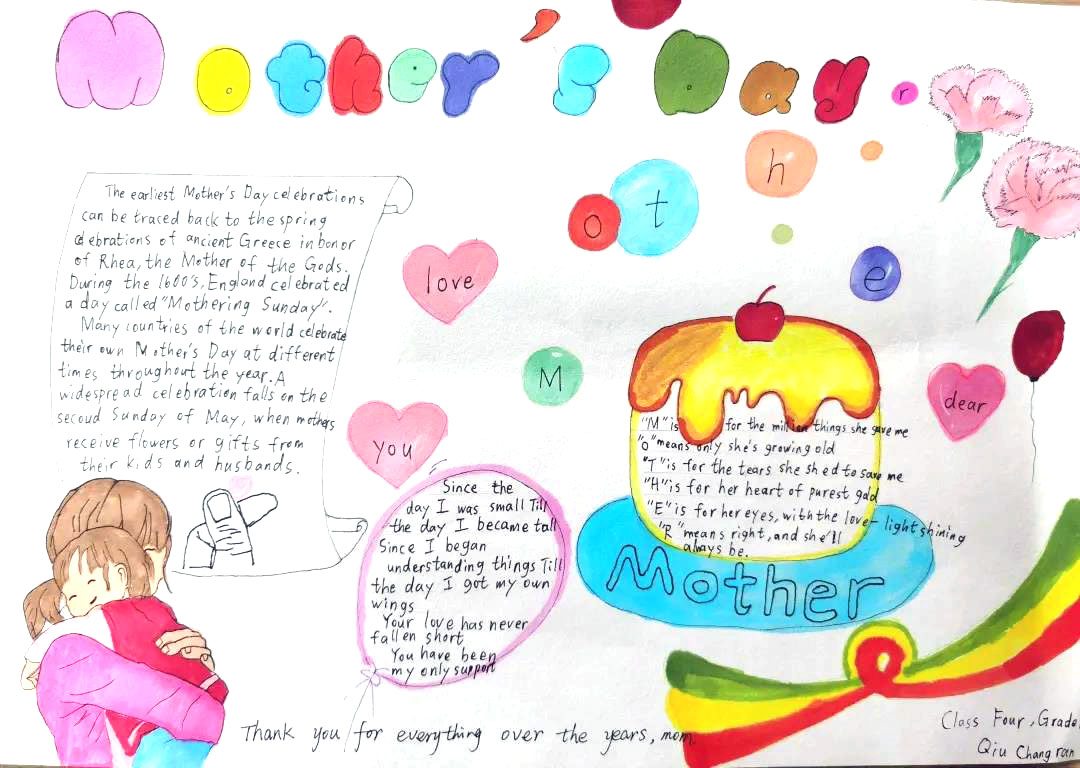 Mother's Day
The earliest Mother's Day celebrations
can be traced back to the spring
celebrations of ancient Greece in bonor
of Rhea, the Mother of the Gods.
During the 1600's, England celebrated
a day called "Mothering Sunday".
Many countries of the world celebrate
their own Mother's Day at different
times throughout the year. A
widespread celebration falls on the
secoud Sunday of May, when mothers
receive flowers or gifts from
their kids and husbands.
love
you
M
o
t
h
e
r
dear
"M" is for the million things she gave me
"O" means only she's growing old
"T" is for the tears she shed to save me
"H" is for her heart of purest gold
"E" is for her eyes, with the love-light shining
"R" means right, and she'll
always be.
Mother
Since the
day I was small Till
the day I became tall
Since I began
understanding things Till
the day I got my own
wings
Your love has never
fallen short
You have been
my only support
Thank you for everything over the years, mom.
Class Four, Grade
Qiu Changran